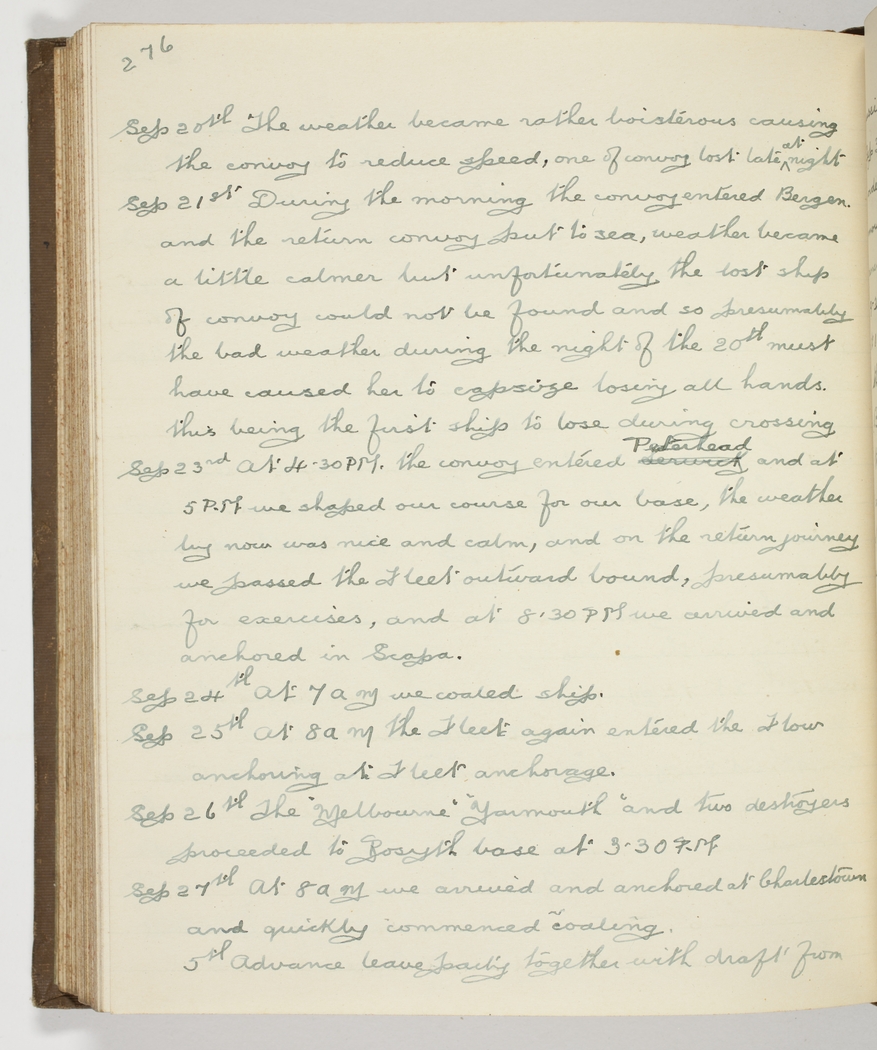 276
Sep 20th The weather became rather boisterous causing
the convoy to reduce speed, one of convoy lost late at night
Sep 21st During the morning the convoy entered Bergen.
and the return convoy put to sea, weather became
a little calmer but unfortunately the lost ship
of convoy could not be found and so presumably
the bad weather during the night of the 20th must
have caused her to capsize losing all hands.
this being the first ship to lose during crossing
Sep 23rd At 4.30PM. the convoy entered Peterhead and at
5 P.M we shaped our course for our base, the weather
by now was nice and calm, and on the return journey
we passed the Fleet outward bound, presumably
for exercises, and at 8.30 PM we arrived and
anchored in Scapa.
Sep 24th At 7 am we coaled ship.
Sep 25th At 8 am the Fleet again entered the Flow
anchoring at Fleet anchorage.
Sep 26th The "Melbourne" "Yarmouth" and two destroyers
proceeded to Rosyth base at 3.30 P.M
Sep 27th At 8 am we arrived and anchored at Charlestown
and quickly commenced "coaling.
5th Advance leave party together with draft from